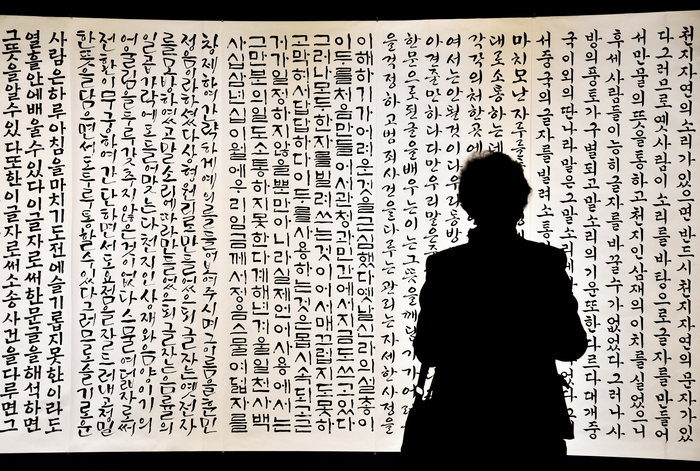 천지자연의소리가있으면반드시천지자연의문자가있
다그러므로옛사람이소리를바탕으로글자를만들어
서만물의뜻을통하고천지인삼재의이치를실었으니
후세사람들이능히글자를바꿀수가없었다그러나사
방의풍토가구별되고말소리의기운또한다르다대개중
국이외의딴나라말은그말소리에
서중국의글자를빌려소통
마치모난자루를
대로소통하는데
각각의처한곳에
여서는안될것이다우리동방
아견줄만하나다만우리말은
한문으로된글을배우는이는그뜻을깨닫기가어려
을걱정하고범죄사건을다루는관리는자세한사정을
이해하기가어려운것을근심했다옛날신라의설총이
이두를처음만들어서관청과민간에서지금도쓰고있다
그러나모두한자를빌려쓰는것이어서매끄럽지도못하
고막혀서답답하다이두를사용하는것은몹시속되고근
거가일정하지않을뿐만아니라실제언어사용에서는
그만분의일도소통하지못한다계해년겨울일천사백
사십삼년십이월에우리임금께서정음스물여덟자를
창제하여간략하게예의를들어보여주시며그이름을훈민
정음이라하셨다상형원리로만들었으되글자는옛전자
를모방하였고말소리에따라만들었으되글자는음률의
일곱가락에도들어맞는다천지인삼재와음양이기의
어울림을두루갖추지않은것이없다스물여덟자로써
전환이무궁하여간단하면서도요점을잘드러내고정밀
한뜻을담으면서도두루통할수있다그러므로슬기로운
사람은하루아침을마치기도전에슬기롭지못한이라도
열흘안에배울수있다이글자로써한문글을해석하면
그뜻을알수있다또한이글자로써소송사건을다루면그